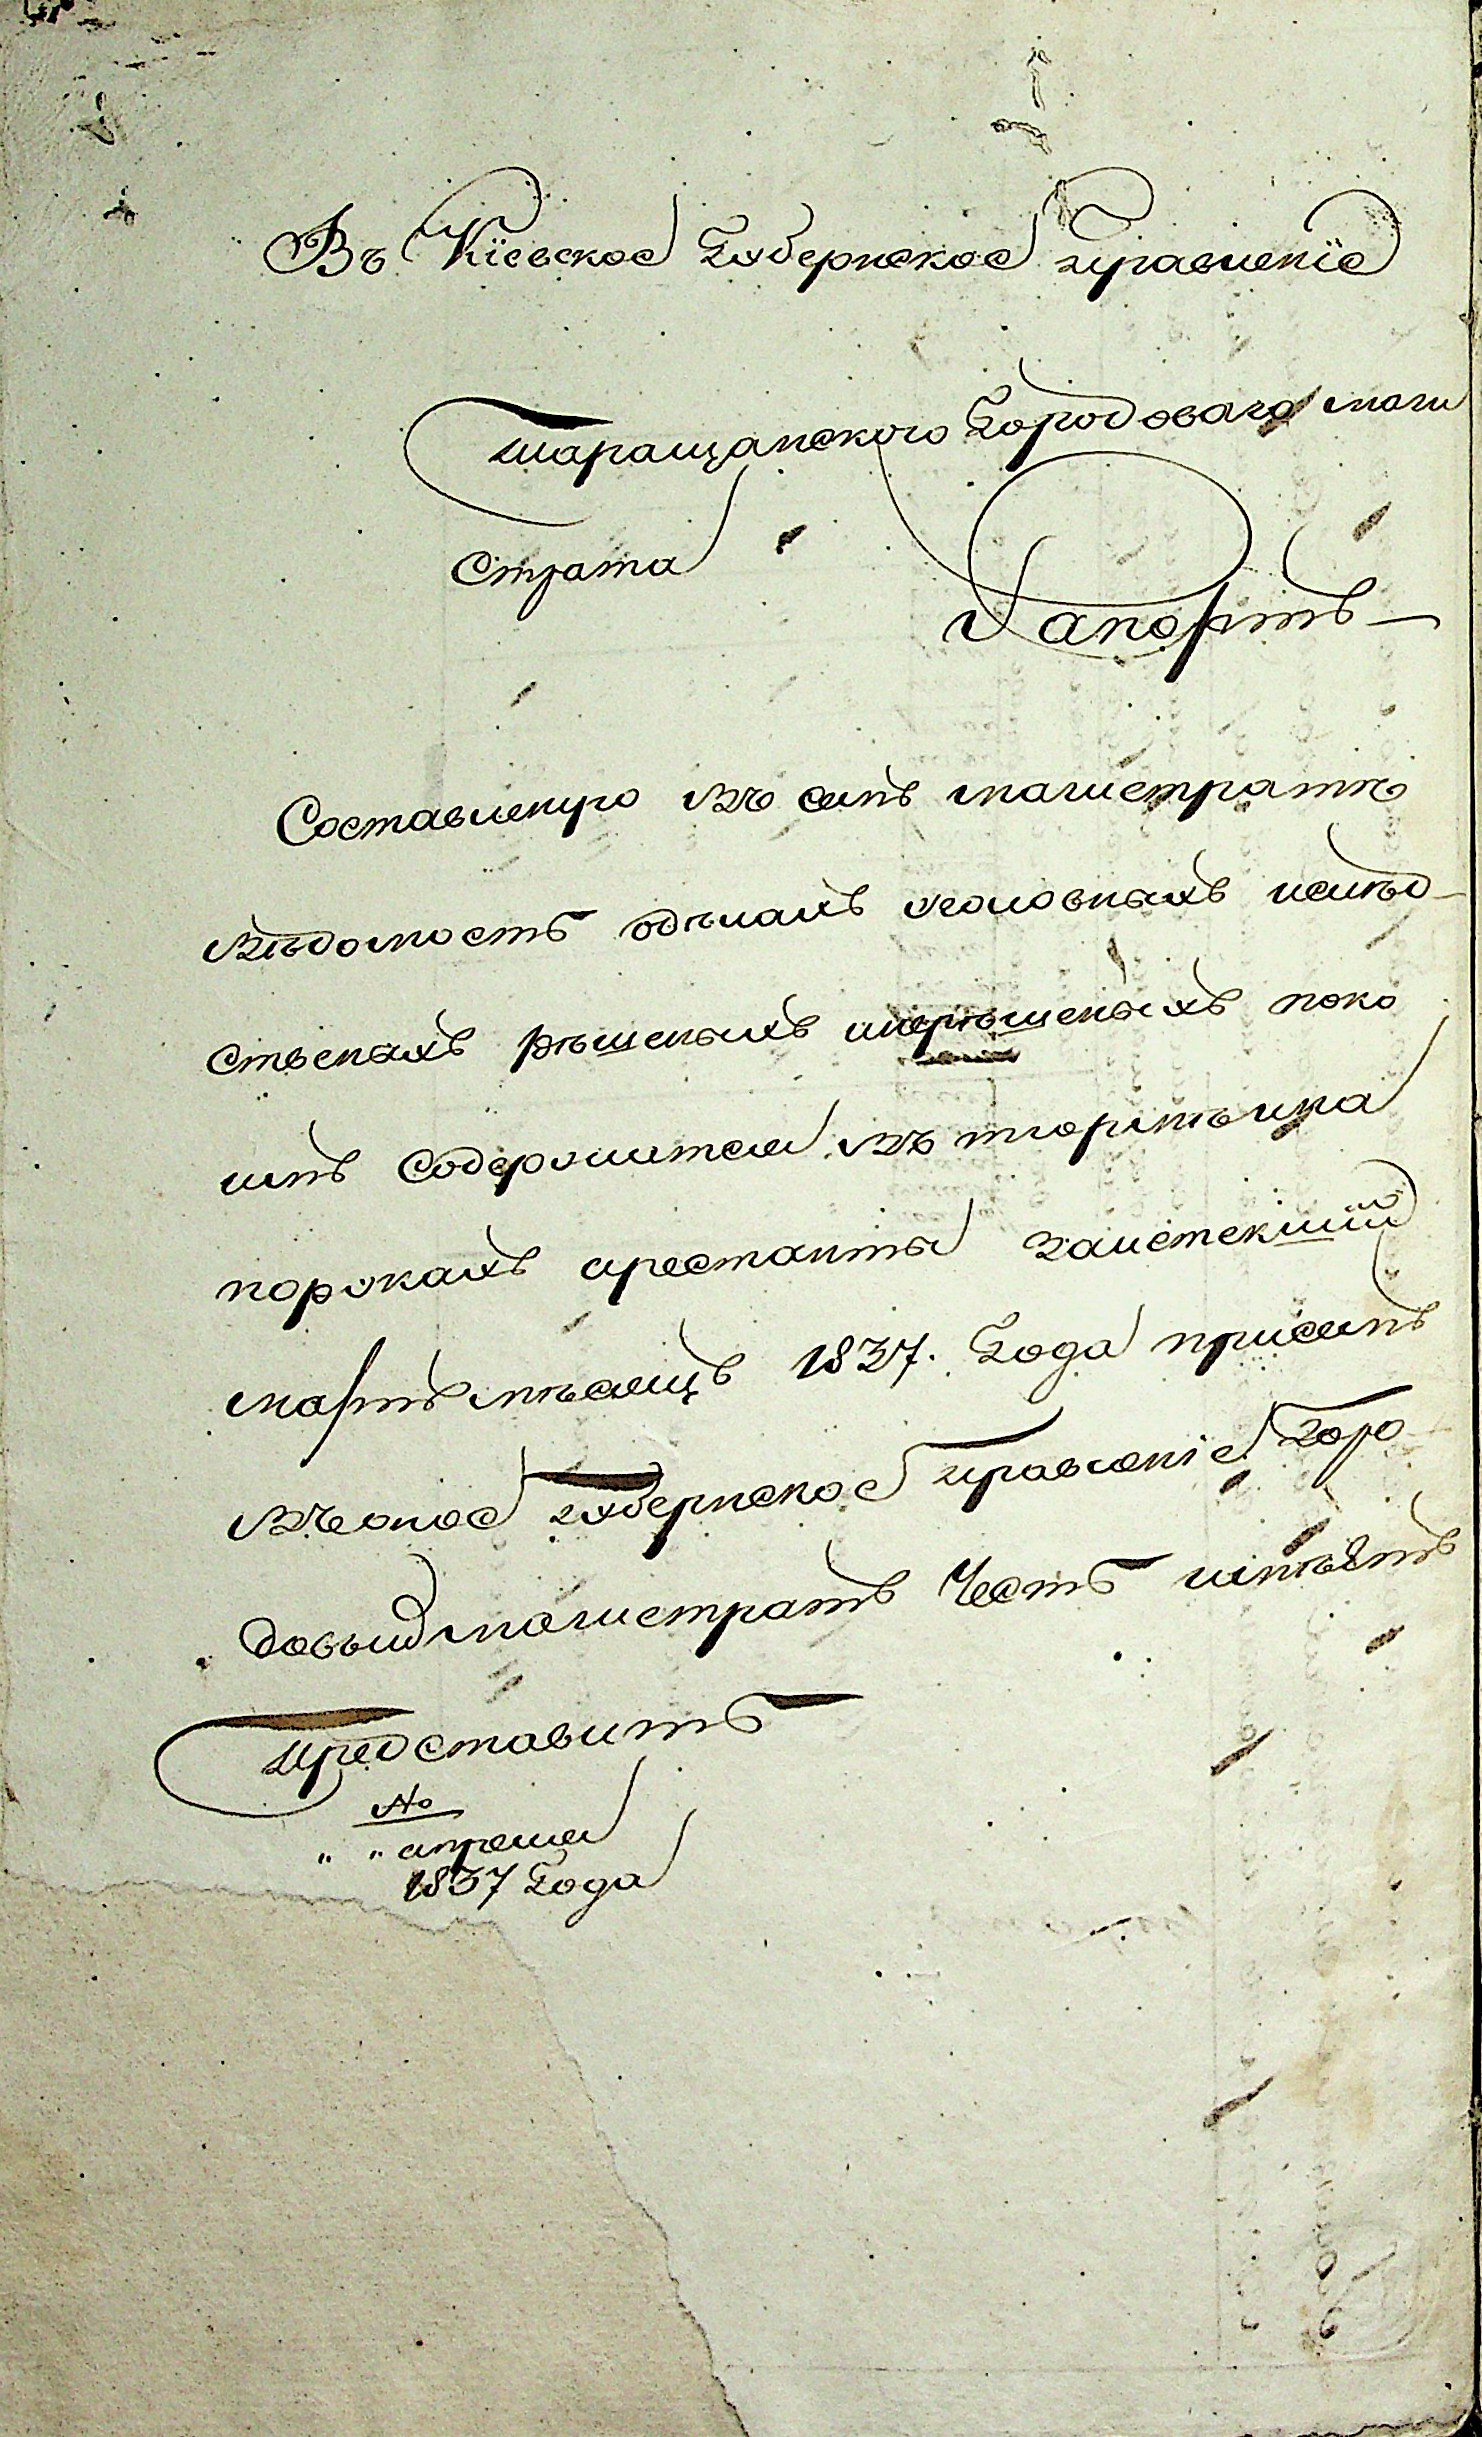 Въ Кіевское Губернское правленіе
Таращанского Городоваго маги
страта
Рапортъ —
Составленую въ семъ магистратѣ
вѣдомость одѣлахъ уголовныхъислѣд-
ственыхъ рѣшеныхъ инерѣшеныхъ поко
имъ содержится въ тюрмѣ ина
порукахъ арестанты заистекшій
мартъ мѣсяцъ 1837. Года присемъ
въ оное Губернское правленіе Горо
довый магистратъ Честь имѣетъ
представить
№
„ „ апреля
1837 Года